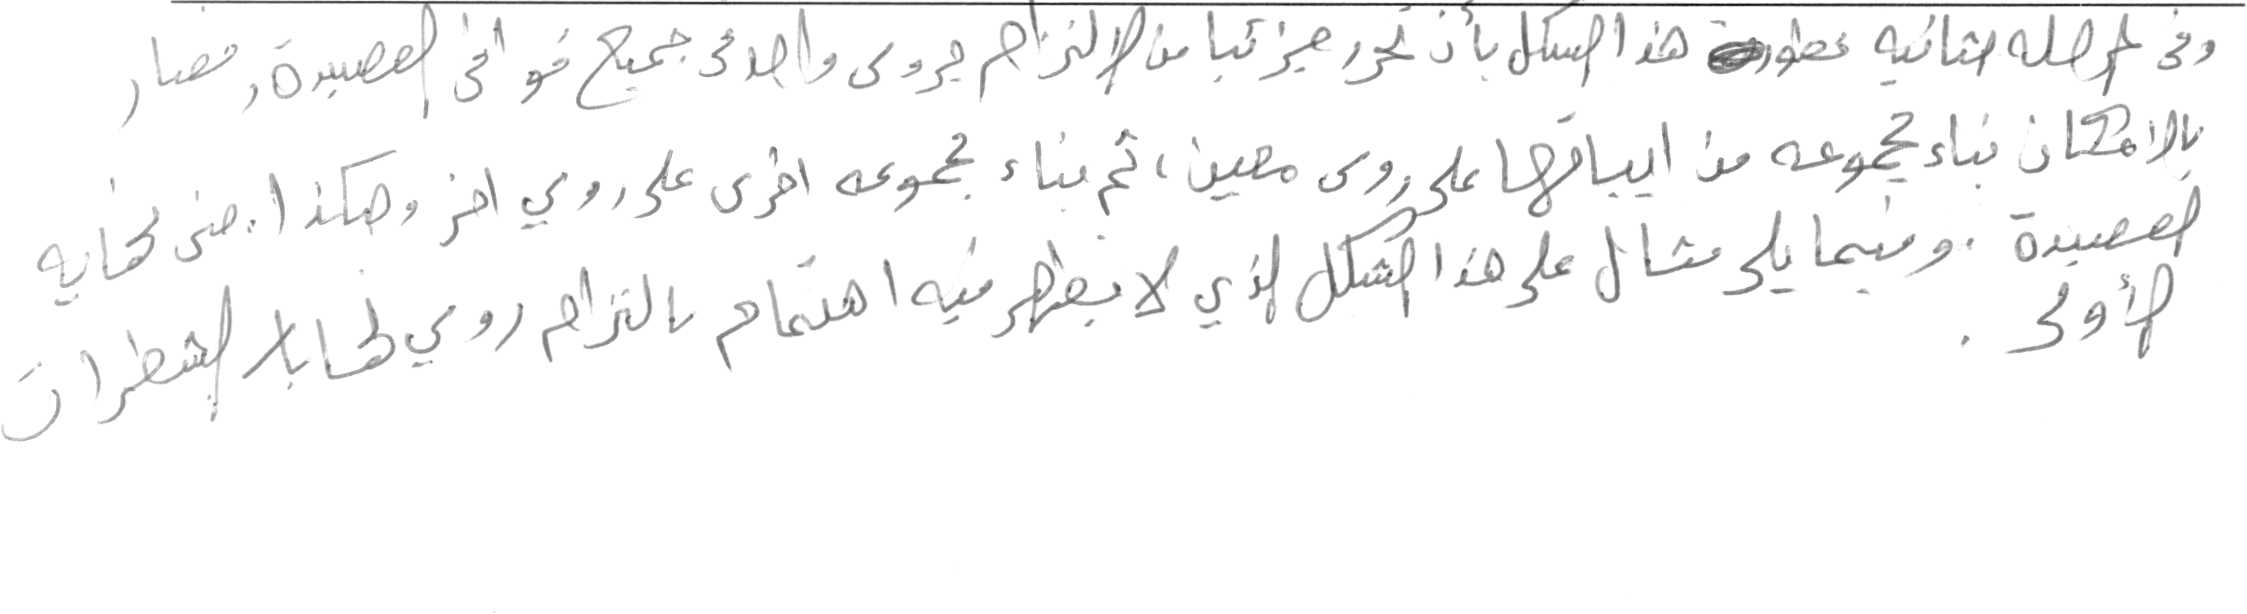 وفي المرحله الثانيه تطور هذا الشكل بأن تحرر جزئيا من الالتزام بروي واحد في جميع قوافي القصيدة, فصار
بالامكان بناء مجموعه من ابياتها على روي معين، ثم بناء مجموعه اخرى على روي اخر وهكذا. حتى نهايه
القصيدة. وفيما يلي مثال على هذا الشكل الذي لا يظهر فيه اهتمام بالتزام روي لنهايات الشطرات
الأولى.